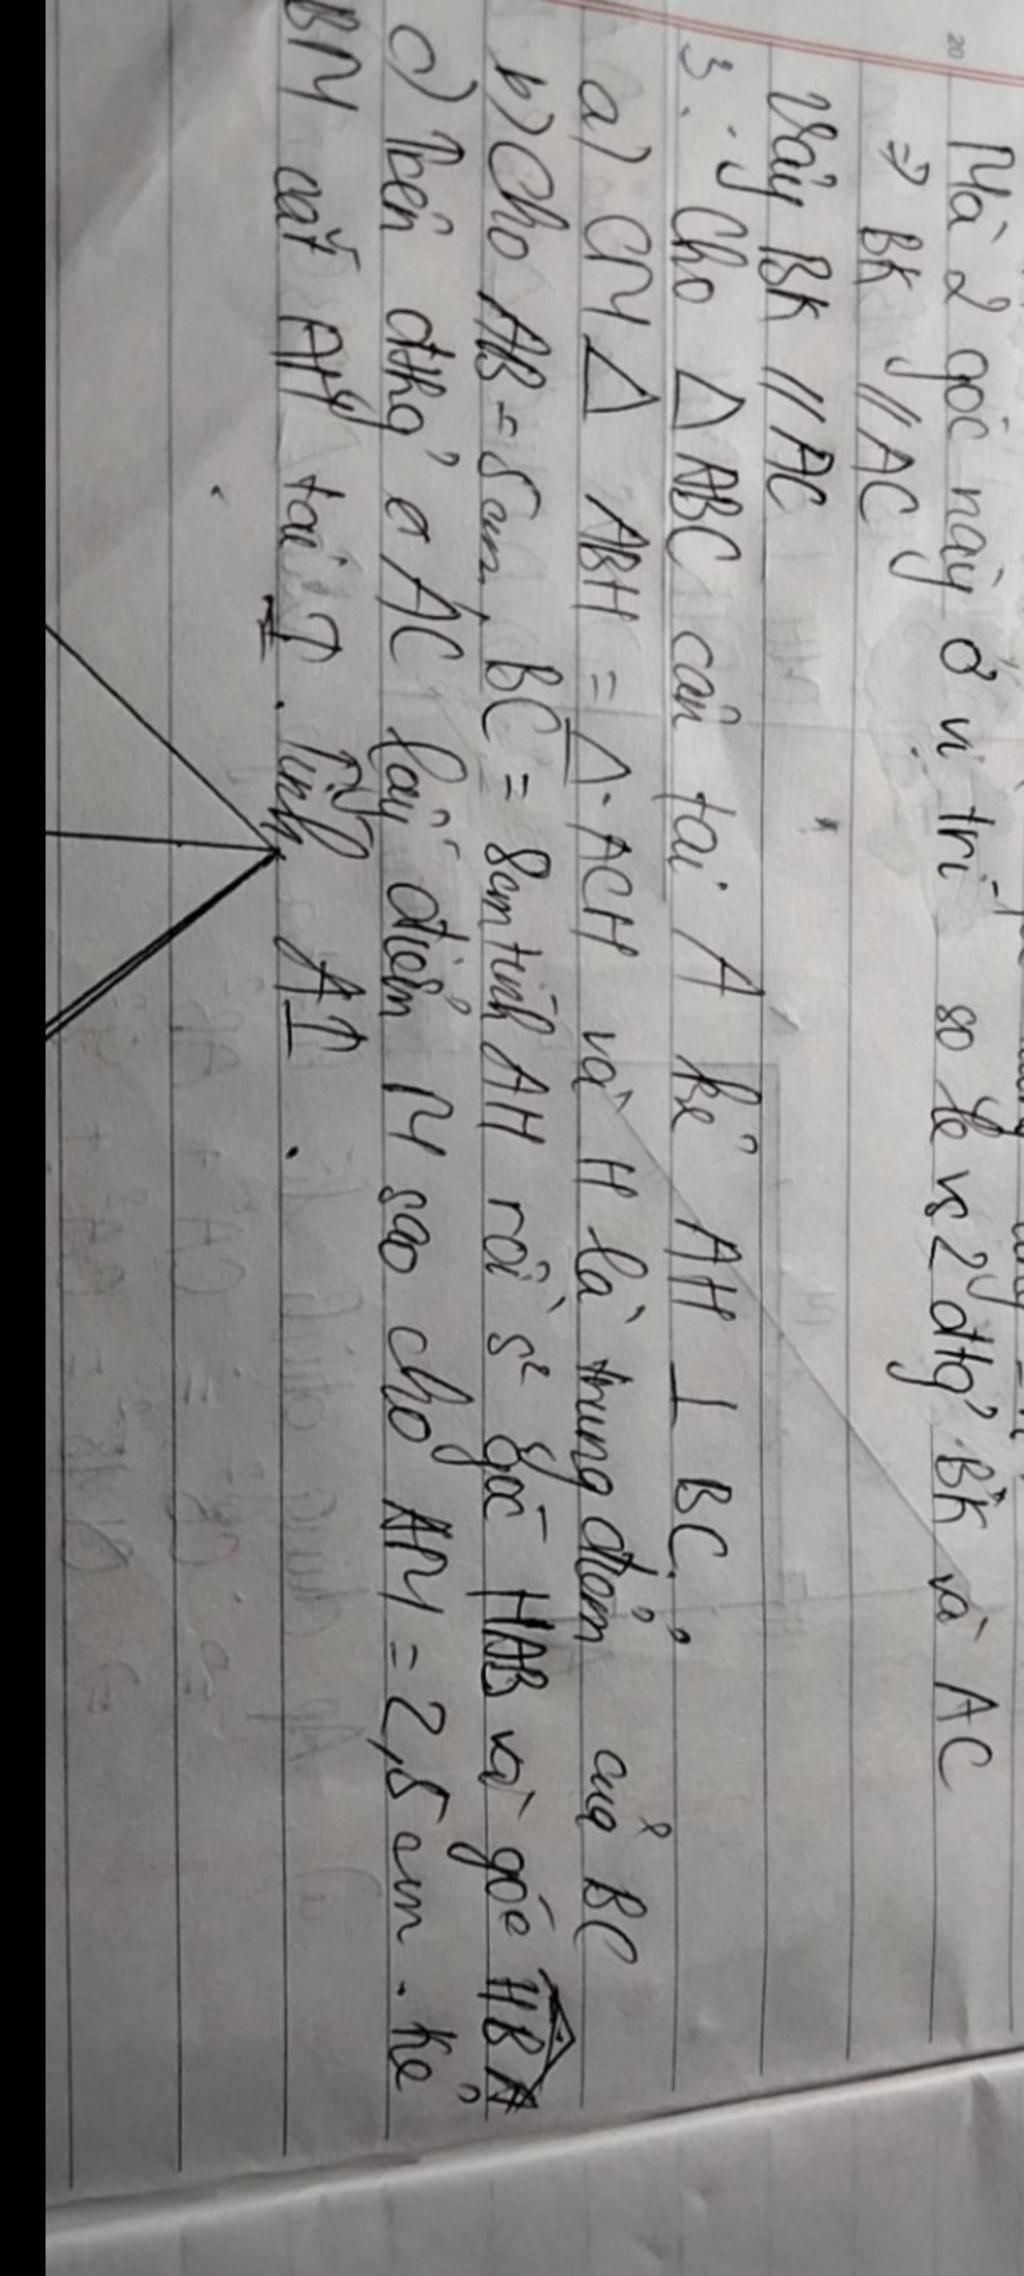 20
Mà 2 góc này ở vị trí so le vs 2 đtg' BK và AC
=> BK // AC
Vậy BK // AC
3. Cho △ ABC cân tại A kẻ AH ⊥ BC.
a) CM △ ABH = △ ACH và H là trung điểm của BC
b) Cho AB = 5cm, BC = 8cm tính AH rồi s² góc HAB và góc HBA
c) Trên đthg' AC lấy điểm M sao cho AM = 2,5cm. Kẻ
BM cắt AH tại I. Tính AI.